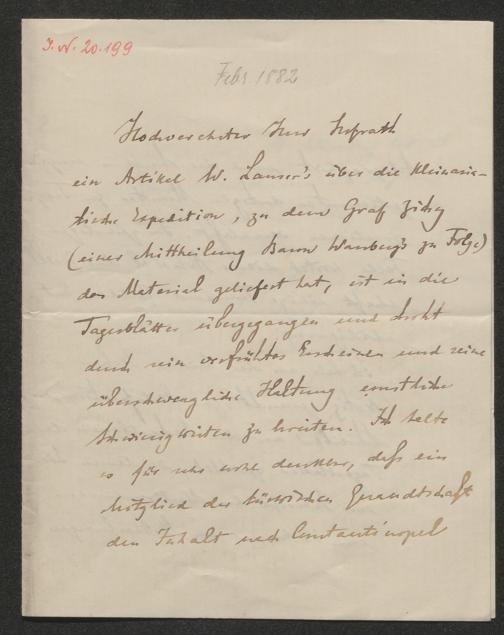 J. N. 20.199
Febr 1882
Hochverehrter Herr Hofrath
ein Artikel W. Lauser's über die kleinasia-
tische Expedition, zu dem Graf Zichy
(einer Mittheilung Baron Warsberg's zu Folge)
das Material geliefert hat, ist in die
Tagesblätter übergegangen und droht
durch sein verfrühtes Erscheinen und seine
überschwengliche Haltung ernstliche
Schwierigkeiten zu bereiten. Ich halte
es für sehr wohl denkbar, daß ein
Mitglied der türkischen Gesandtschaft
den Inhalt nach Constantinopel